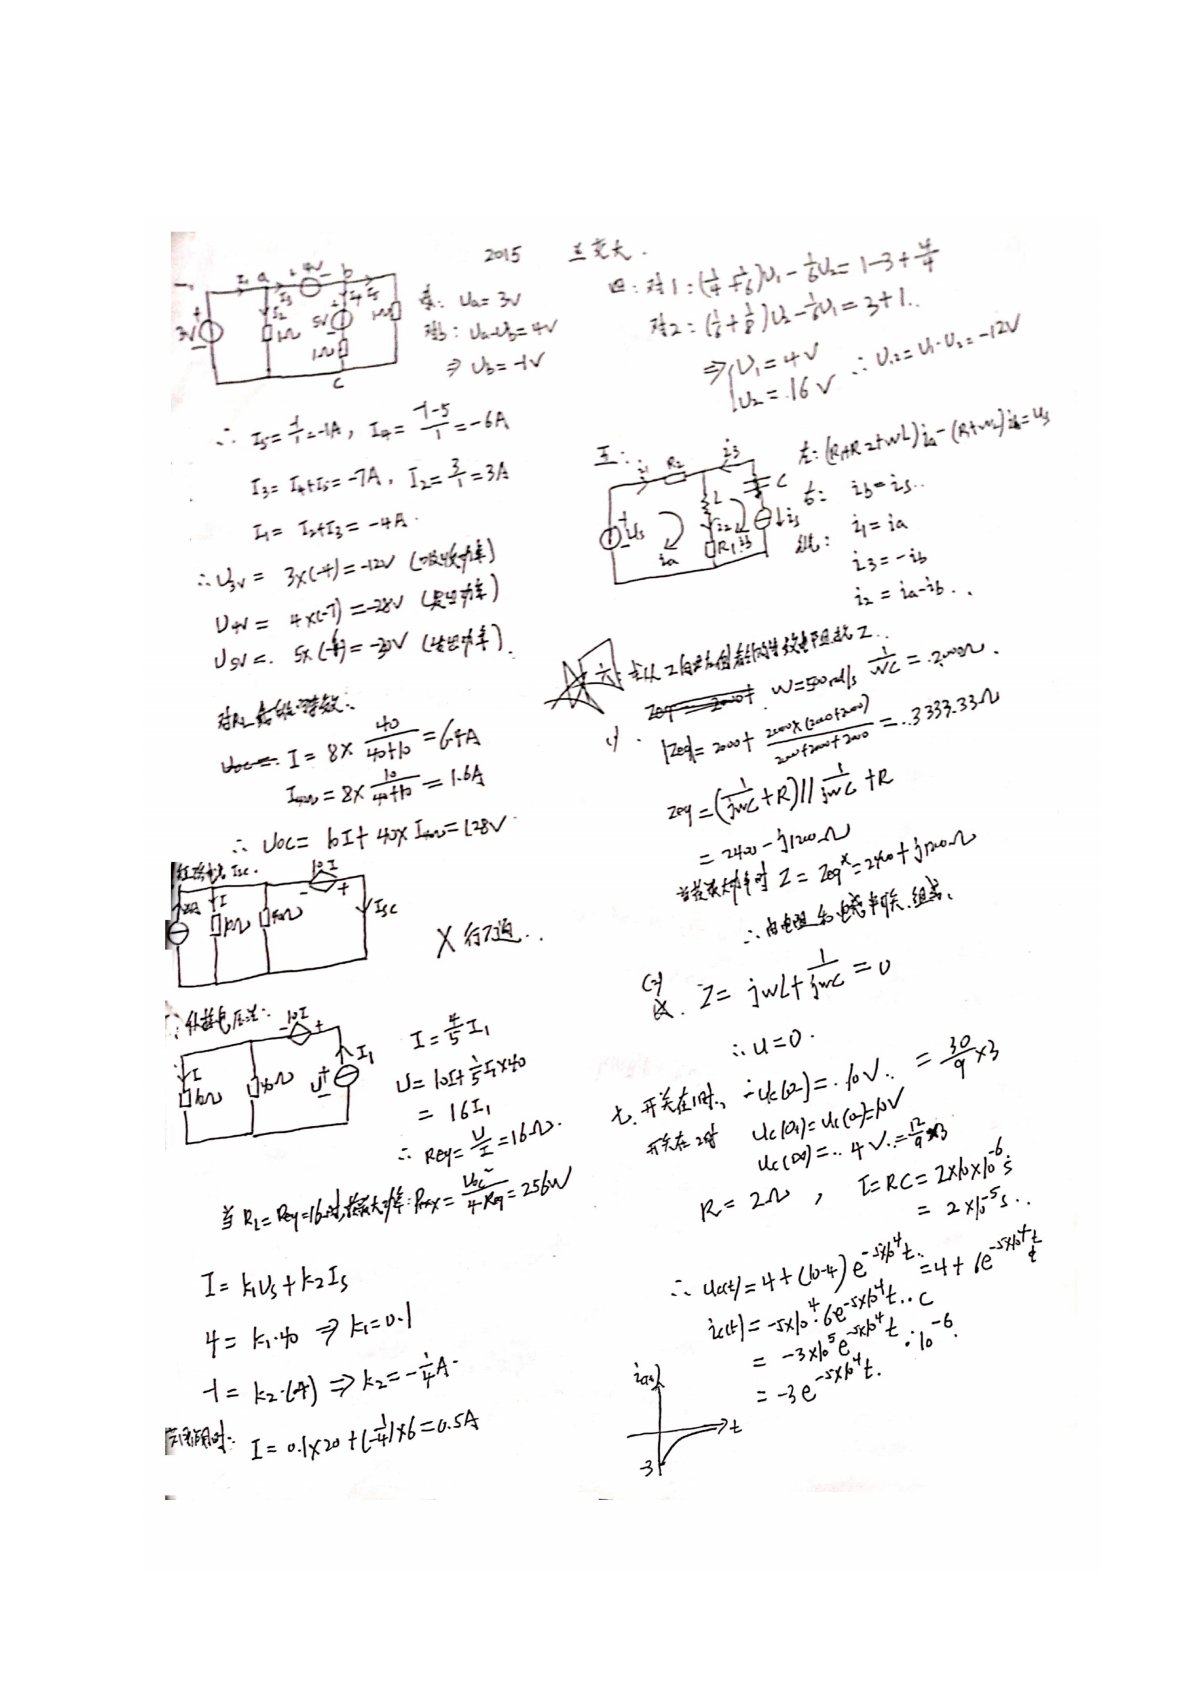 2015 兰交大.
I₁ a 4V b
I₃ I₄ I₅
I₂
3V 1Ω 5V 1Ω
1Ω
C
Ua=3V
对b: Ua-Ub=4V
⇒ Ub=-1V
∴ I₅=-1/1=-1A, I₄=(-1-5)/1=-6A
I₃=I₄+I₅=-7A, I₂=3/1=3A
I₁=I₂+I₃=-4A.
∴U3V = 3×(-4)=-12V (吸收功率)
U4V = 4×(-7)=-28V (发出功率)
U5V =. 5×(-6)=-30V (发出功率).
I=8×40/(40+10)=6.4A
I40Ω=8×10/(40+10)=1.6A
∴ Uoc= 10I+40×I40Ω=128V
Isc.
10I
- +
I
10Ω 40Ω Isc
X 行不通..
外施电压法:
-10I +
I I₁
10Ω 40Ω U
I=4/5 I₁
U=10I+1/5 I₁×40
= 16I₁
∴ Req=U/I=16Ω.
当 RL=Req=16时,获最大功率: Pmax=Uoc²/4Req=256W
I=k₁Us+k₂Is
4=k₁·40 ⇒ k₁=0.1
-1=k₂·(4) ⇒ k₂=-1/4A.
I=0.1×20+(-1/4)×6=0.5A
四: 对1: (1/4+1/6)U₁-1/6U₂=1-3+4/4
对2: (1/6+1/8)U₂-1/6U₁=3+1..
⇒ U₁=4V
U₂=.16V ∴ U₁₂=U₁-U₂=-12V
五: i₁ R₂ i₃
L C
Us i₂ is
ia R₁ ib
左: (R₁+R₂+WL)ia-(R₁+WL)ib=Us
右: ib=is..
i₁=ia
i₃=-ib
i₂=ia-ib..
六:
W=500rad/s 1/WC=.2000Ω.
1) |Zeq|=2000+2000×(2000+2000)/(2000+2000+2000)=..3333.33Ω
Zeq=(1/jwC+R)//1/jwC+R
=2400-j1200Ω
当获最大功率时 Z=Zeq*=2400+j1200Ω
∴由电阻和电感串联.组成.
(2)
Z=jwL+1/jwC=0
∴U=0.
七. 开关在1时., Uc(0-)=.10V. =30/9×3
开关在2时 Uc(0+)=Uc(0-)=10V
Uc(∞)=..4V.=12/9×3
R=2Ω, τ=RC=2×10×10⁻⁶s
=2×10⁻⁵s..
∴Uc(t)=4+(10-4)e^-5×10⁴t..=4+6e^-5×10⁴t
ic(t)=-5×10⁴·6e^-5×10⁴t..C
=-3×10⁵e^-5×10⁴t·10⁻⁶.
=-3e^-5×10⁴t.
t
-3